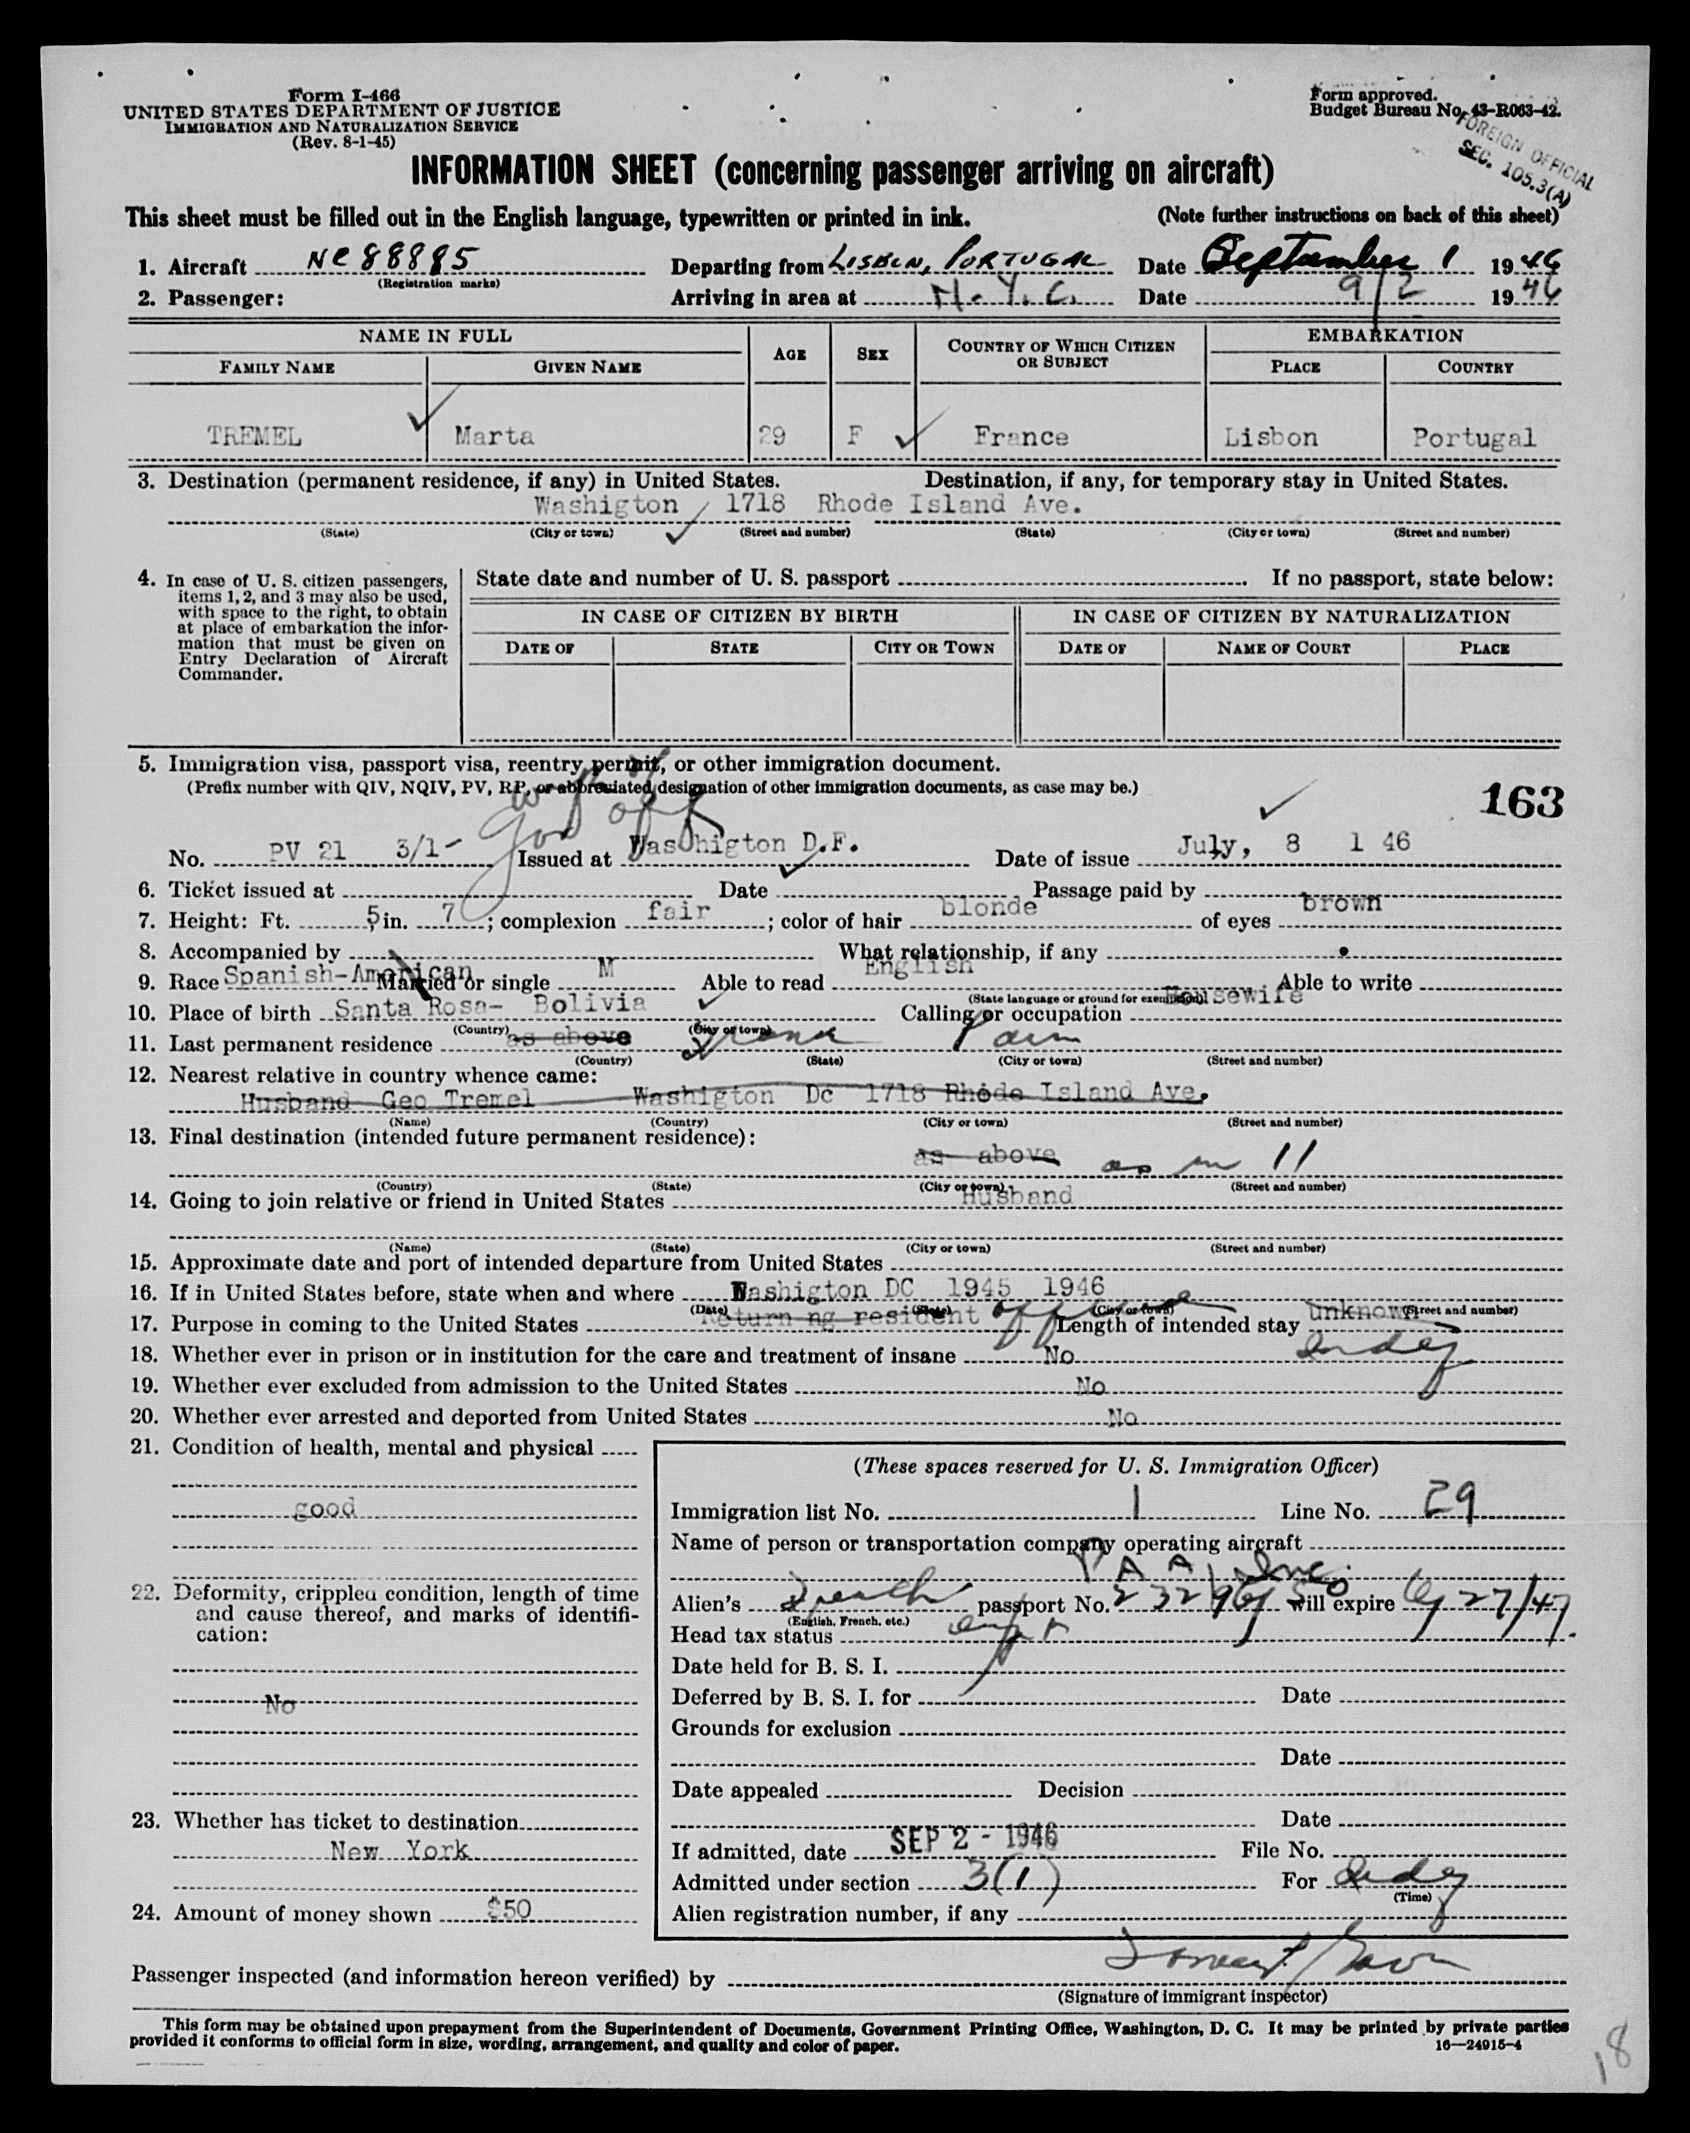 Form I-466
UNITED STATES DEPARTMENT OF JUSTICE
IMMIGRATION AND NATURALIZATION SERVICE
(Rev. 8-1-45)
Form approved.
Budget Bureau No. 43-R063-42.
FOREIGN OFFICIAL
SEC. 105.3(A)
INFORMATION SHEET (concerning passenger arriving on aircraft)
This sheet must be filled out in the English language, typewritten or printed in ink. (Note further instructions on back of this sheet)
1. Aircraft NC 88885 Departing from LISBON, PORTUGAL Date September 1 1946
(Registration marks)
2. Passenger: Arriving in area at N.Y.C. Date 9/2 1946
NAME IN FULL AGE SEX COUNTRY OF WHICH CITIZEN OR SUBJECT EMBARKATION
FAMILY NAME GIVEN NAME PLACE COUNTRY
TREMEL Marta 29 F France Lisbon Portugal
3. Destination (permanent residence, if any) in United States. Destination, if any, for temporary stay in United States.
Washigton 1718 Rhode Island Ave.
(State) (City or town) (Street and number) (State) (City or town) (Street and number)
4. In case of U. S. citizen passengers, items 1, 2, and 3 may also be used, with space to the right, to obtain at place of embarkation the information that must be given on Entry Declaration of Aircraft Commander.
State date and number of U. S. passport If no passport, state below:
IN CASE OF CITIZEN BY BIRTH IN CASE OF CITIZEN BY NATURALIZATION
DATE OF STATE CITY OR TOWN DATE OF NAME OF COURT PLACE
5. Immigration visa, passport visa, reentry permit, or other immigration document.
(Prefix number with QIV, NQIV, PV, RP, or abbreviated designation of other immigration documents, as case may be.)
163
No. PV 21 3/1- Issued at Washigton D.F. Date of issue July, 8 1 46
6. Ticket issued at Date Passage paid by
7. Height: Ft. 5 in. 7; complexion fair; color of hair blonde of eyes brown
8. Accompanied by What relationship, if any
9. Race Spanish-American Married or single M Able to read English Able to write
(State language or ground for exemption)
10. Place of birth Santa Rosa- Bolivia Calling or occupation Housewife
(Country) (City or town)
11. Last permanent residence as above France Paris
(Country) (State) (City or town) (Street and number)
12. Nearest relative in country whence came:
Husband Geo Tremel Washigton Dc 1718 Rhode Island Ave.
(Name) (Country) (City or town) (Street and number)
13. Final destination (intended future permanent residence):
as above as in 11
(Country) (State) (City or town) (Street and number)
14. Going to join relative or friend in United States Husband
(Name) (State) (City or town) (Street and number)
15. Approximate date and port of intended departure from United States
16. If in United States before, state when and where Washigton DC 1945 1946
(Date) (State) (City or town) (Street and number)
17. Purpose in coming to the United States Return ng resident Length of intended stay unknown
18. Whether ever in prison or in institution for the care and treatment of insane No
19. Whether ever excluded from admission to the United States No
20. Whether ever arrested and deported from United States No
21. Condition of health, mental and physical
good
22. Deformity, crippled condition, length of time and cause thereof, and marks of identification:
No
23. Whether has ticket to destination
New York
24. Amount of money shown $50
(These spaces reserved for U. S. Immigration Officer)
Immigration list No. 1 Line No. 29
Name of person or transportation company operating aircraft
P A A Inc.
Alien's French passport No. will expire 27/47.
(English, French, etc.)
Head tax status
Date held for B. S. I.
Deferred by B. S. I. for Date
Grounds for exclusion
Date
Date appealed Decision
Date
If admitted, date SEP 2 - 1946 File No.
Admitted under section 3(1) For Indef
(Time)
Alien registration number, if any
Passenger inspected (and information hereon verified) by
(Signature of immigrant inspector)
This form may be obtained upon prepayment from the Superintendent of Documents, Government Printing Office, Washington, D. C. It may be printed by private parties
provided it conforms to official form in size, wording, arrangement, and quality and color of paper.
16—24915-4
18